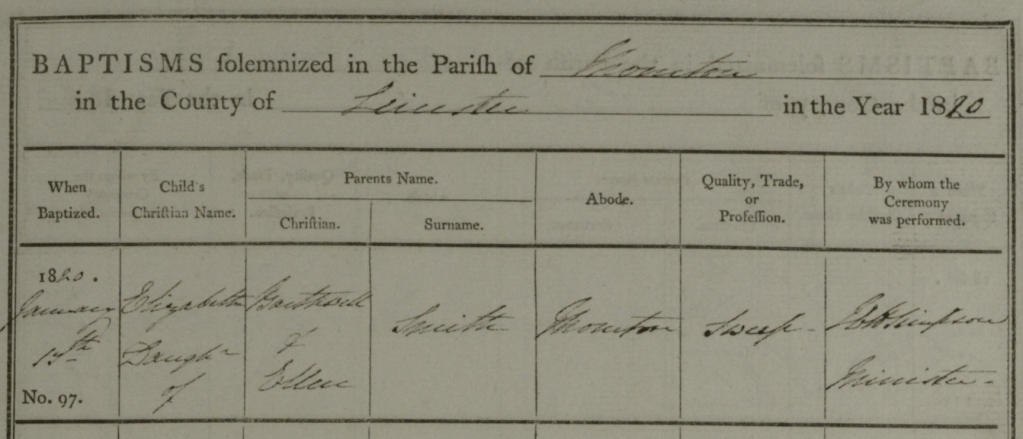 BAPTISMS solemnized in the Parish of Thornton
in the County of Leicester in the Year 1820
When Baptized.
Child's Christian Name.
Parents Name.
Christian.
Surname.
Abode.
Quality, Trade, or Profession.
By whom the Ceremony was performed.
1820.
January
No. 97.
Elizabeth
Daughr
of
&
Ellen
Smith
Thornton
Sweep
Simpson
Minister